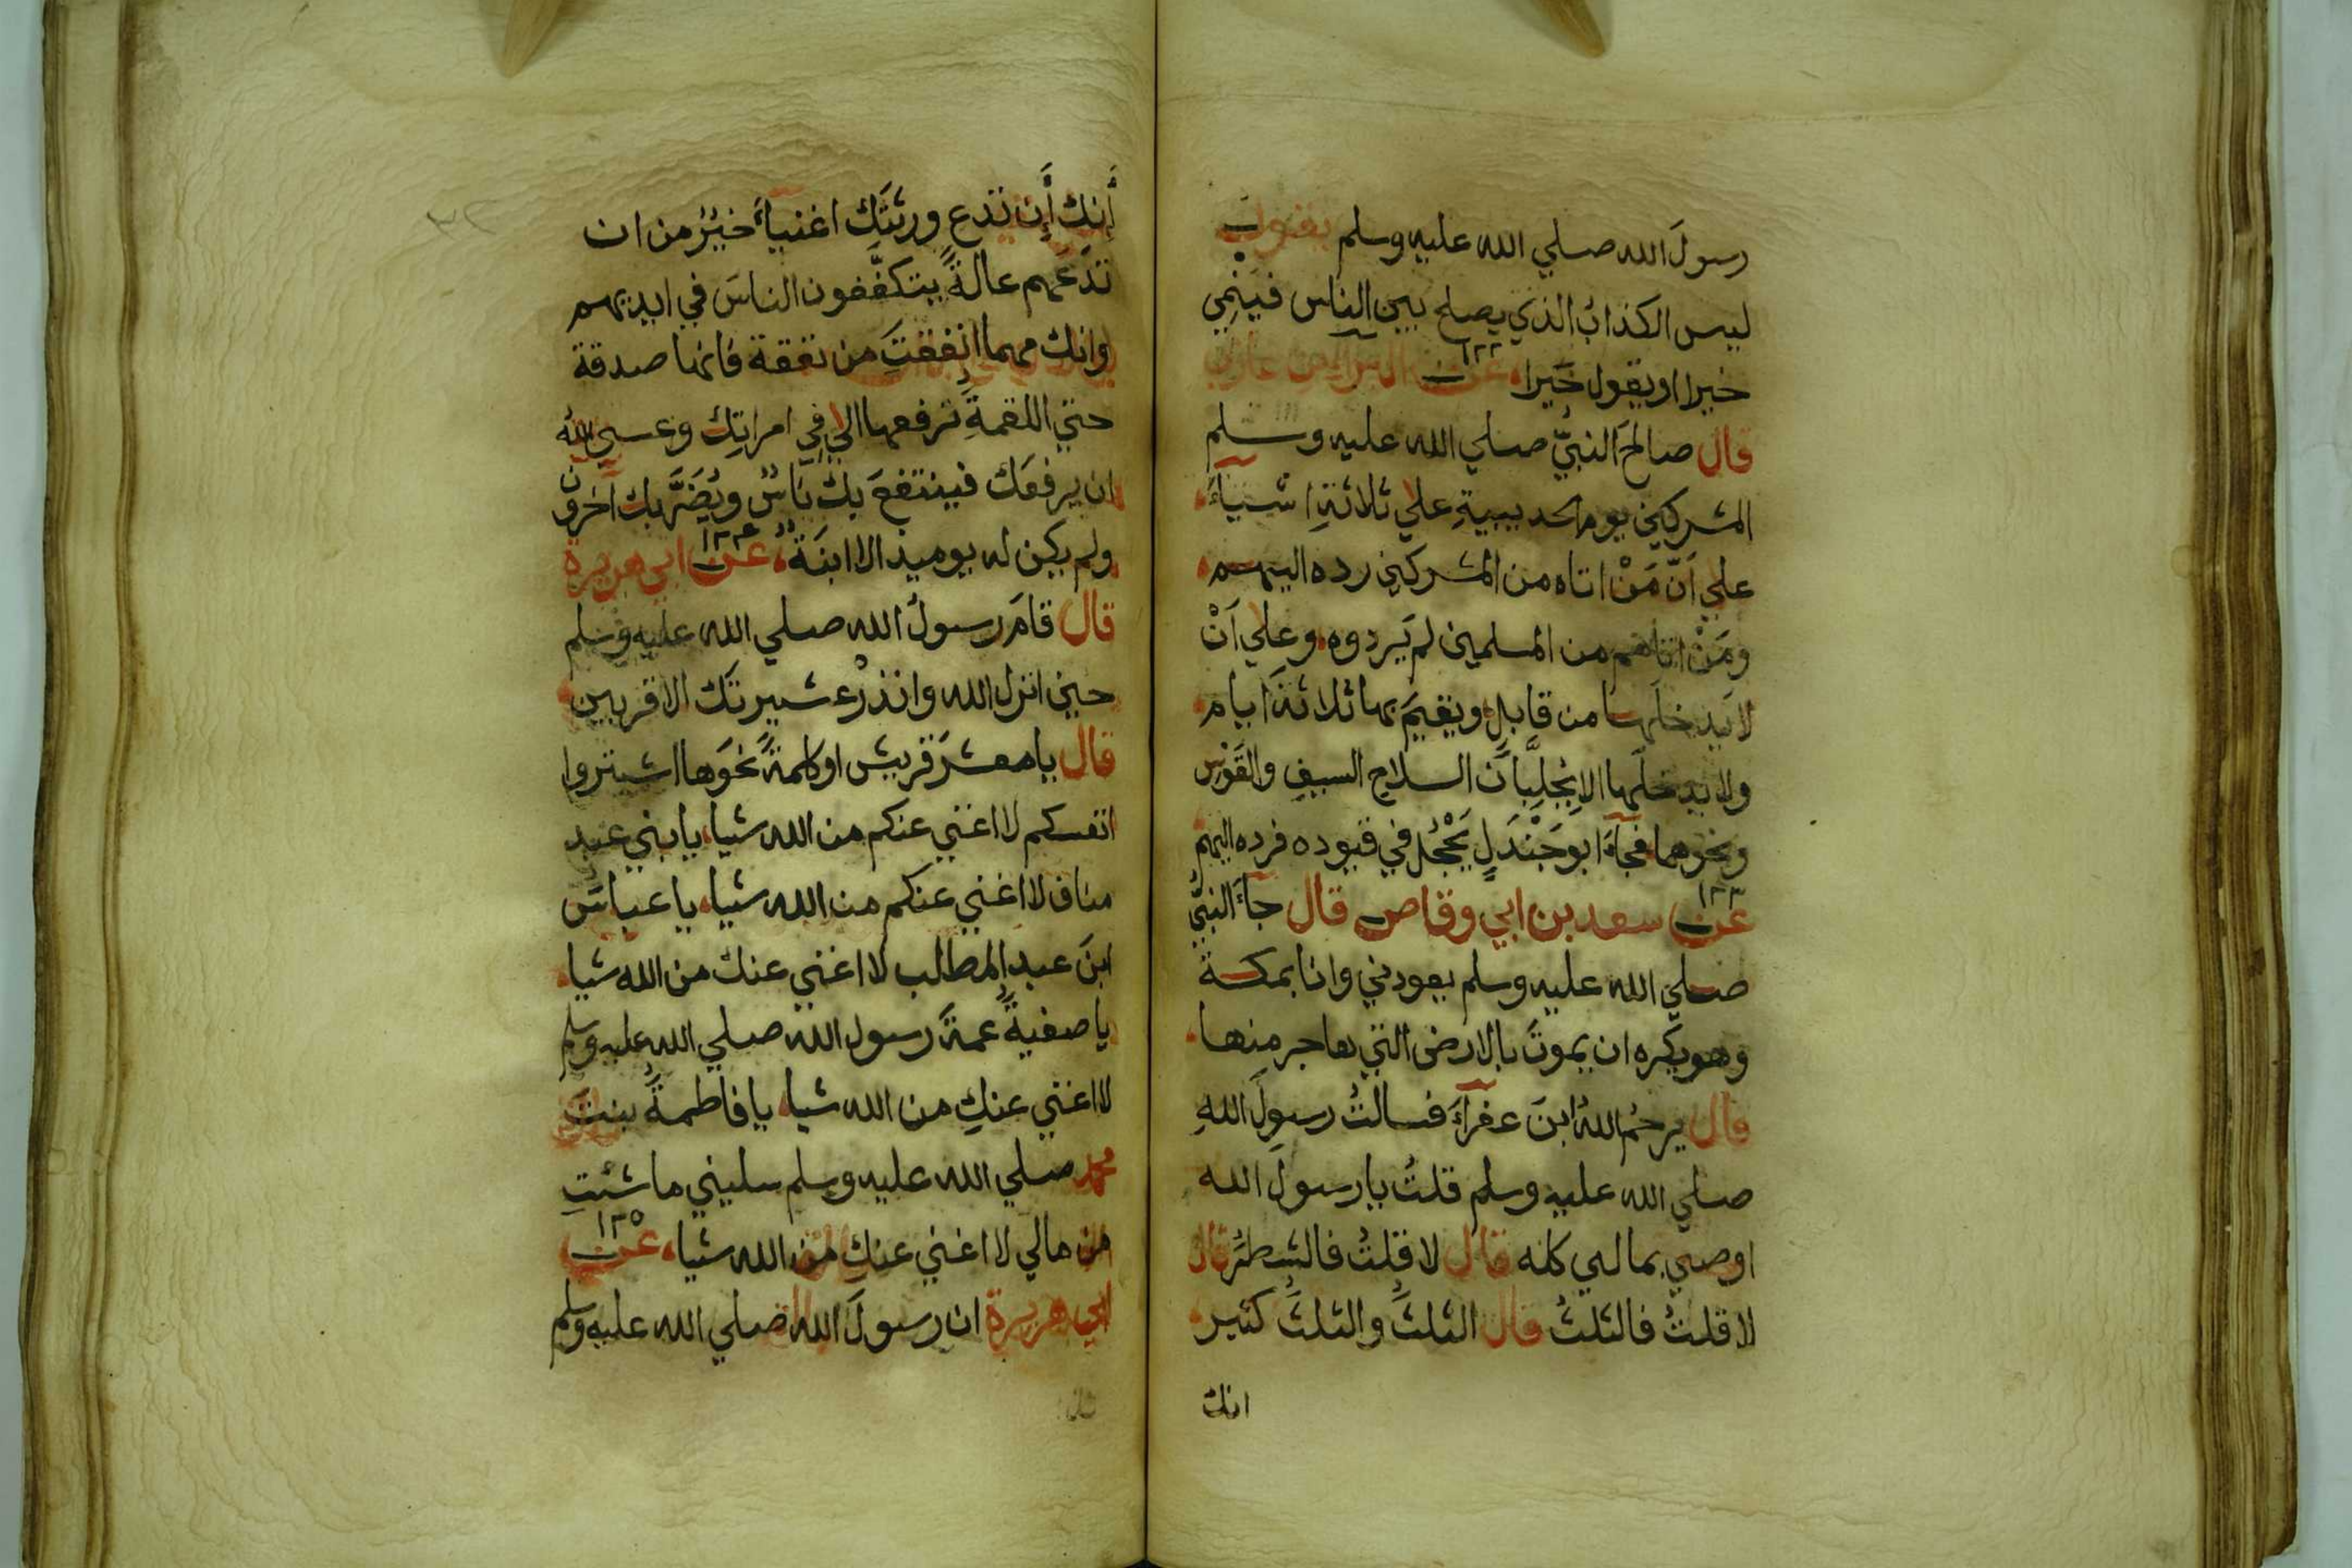 رسولَ الله صلي الله عليه وسلم يقول
ليس الكذابُ الذي يصلح بين الناس فيَنْمِي
خيرا او يقول خَيرا، عن ١٣٢ البراء بن عازب
قال صالحَ النبيُّ صلي الله عليه وسلم
المشركين يوم الحديبيةِ علي ثلاثةِ اشياءَ
علي اَنّ مَنْ اتاه من المشركين رده اليهم
ومَنْ اتاهم من المسلمين لم يَردوه وعلي اَنْ
لا يَدخلَها من قابلٍ ويقيمَ بها ثلاثةَ ايام
ولا يدخلَها الا بِجُلُبَّانِ السلاح السيفِ والقَوْسِ
ونحوهما فجاءَ ابو جَنْدَلٍ يَحْجُل في قيوده فرده اليهم
عن ١٣٣ سعد بن ابي وقاص قال جاءَ النبيُّ
صلي الله عليه وسلم يعودني وانا بمكة
وهو يكره ان يموتَ بالارض التي هاجر منها
قال يرحُم اللهُ ابنَ عفراءَ فسالتُ رسولَ اللهِ
صلي الله عليه وسلم قلتُ يا رسولَ الله
اوصي بمالي كله قال لا قلتُ فالشطرُ قال
لا قلتُ فالثلثُ قال الثلثَُ والثلثُ كثير
انك
أَنِك أَِن تَدَع ورثتَك اغنياءَ خيرٌ من ان
تدَعَهم عالةً يتكفَّفون الناسَ في ايديهم
وانك مهما انفقتَ من نفقة فانها صدقة
حتي اللقمةَِ ترفعها الي فِي امراتِك وعسي الله
ان يرفعَك فينتفعَ بك ناسٌ ويُضَرَّ بك آخرون
ولم يكن له يوميذ الا ابنَة، عن ١٣٤ ابي هريرة
قال قامَ رسولُ الله صلي الله عليه وسلم
حين انزل الله وانذرْ عشيرتَك الاقربين
قال يا معشرَ قريش او كلمةً نحوَها اشتروا
انفسكم لا اغني عنكم من الله شيا، يا بني عبد
مناف لا اغني عنكم من الله شيا، يا عباسُ
ابنَ عبد المطالب لا اغني عنك من الله شيا
يا صفيةَُ عمةَ رسول الله صلي الله عليه وسلم
لا اغني عنكِ من الله شيا، يا فاطمةَُ بنتَ
محمد صلي الله عليه وسلم سليني ما شئتِ
من مالي لا اغني عنكِ من الله شيا، عن ١٣٥
ابي هريرة ان رسولَ الله صلي الله عليه وسلم